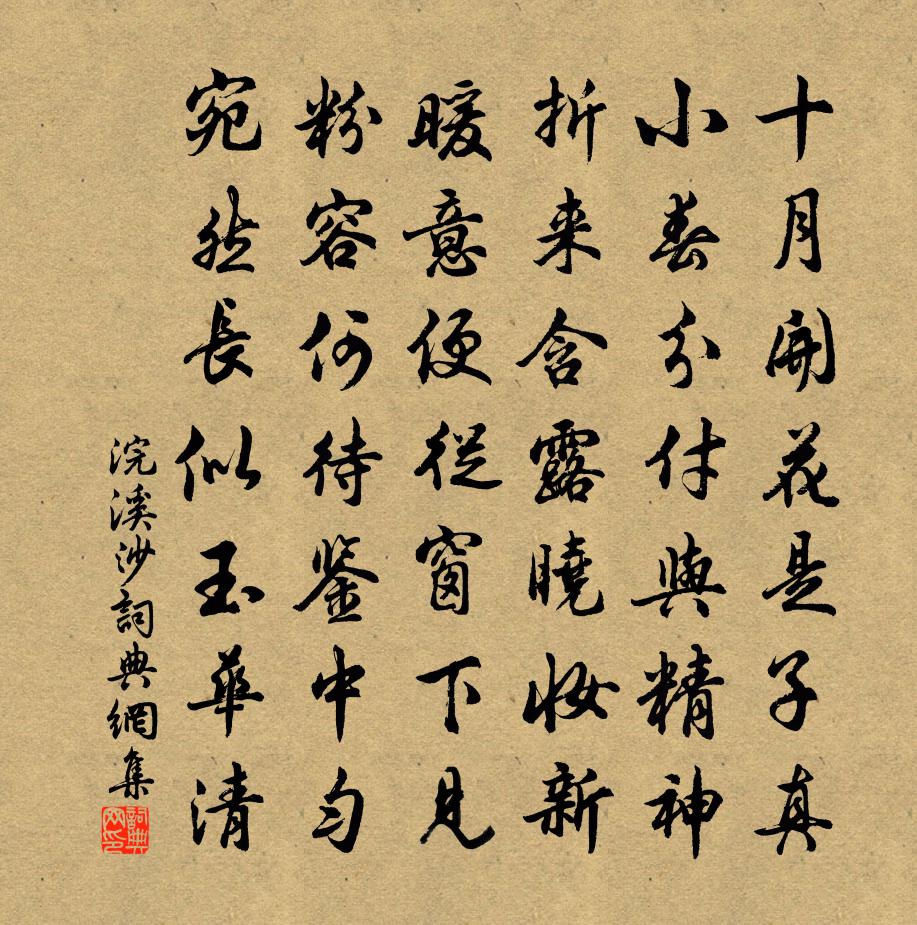 十月開花是子真
小春分付與精神
折来含露曉妝新
暖意便從窗下見
粉容何待鉴中勻
宛然長似玉華清
浣溪沙詞典網集
詞典網印